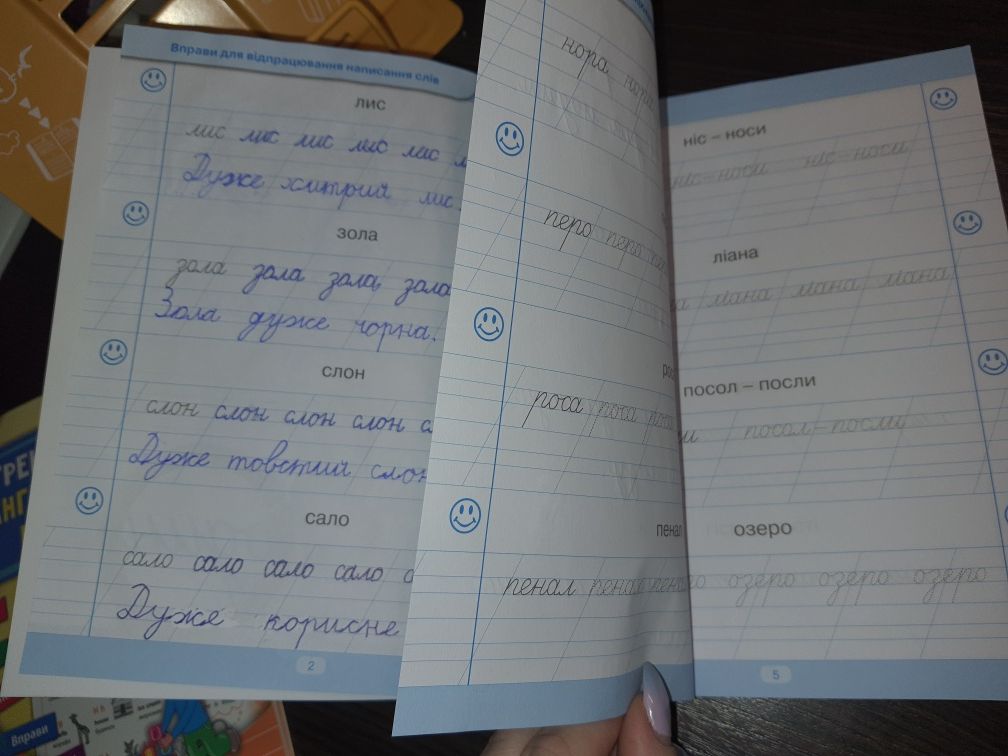 Вправи для відпрацювання написання слів
лис
лис лис лис лис лис
Дуже хитрий лис.
зола
зола зола зола, зола
Зола дуже чорна.
слон
слон слон слон слон
Дуже товстий слон
сало
сало сало сало сало
Дуже корисне
2
нора нора
перо перо
роса роса роса
пенал
пенал пенал
ніс – носи
ніс–носи ніс–носи
ліана
ліана ліана ліана
посол – посли
посол–посли
озеро
озеро озеро озеро
5
Вправи